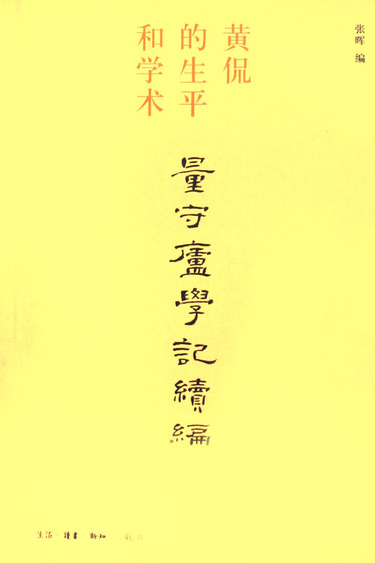 张晖 编
黄侃
的生平
和学术
量守廬學記續編
生活·讀書·新知